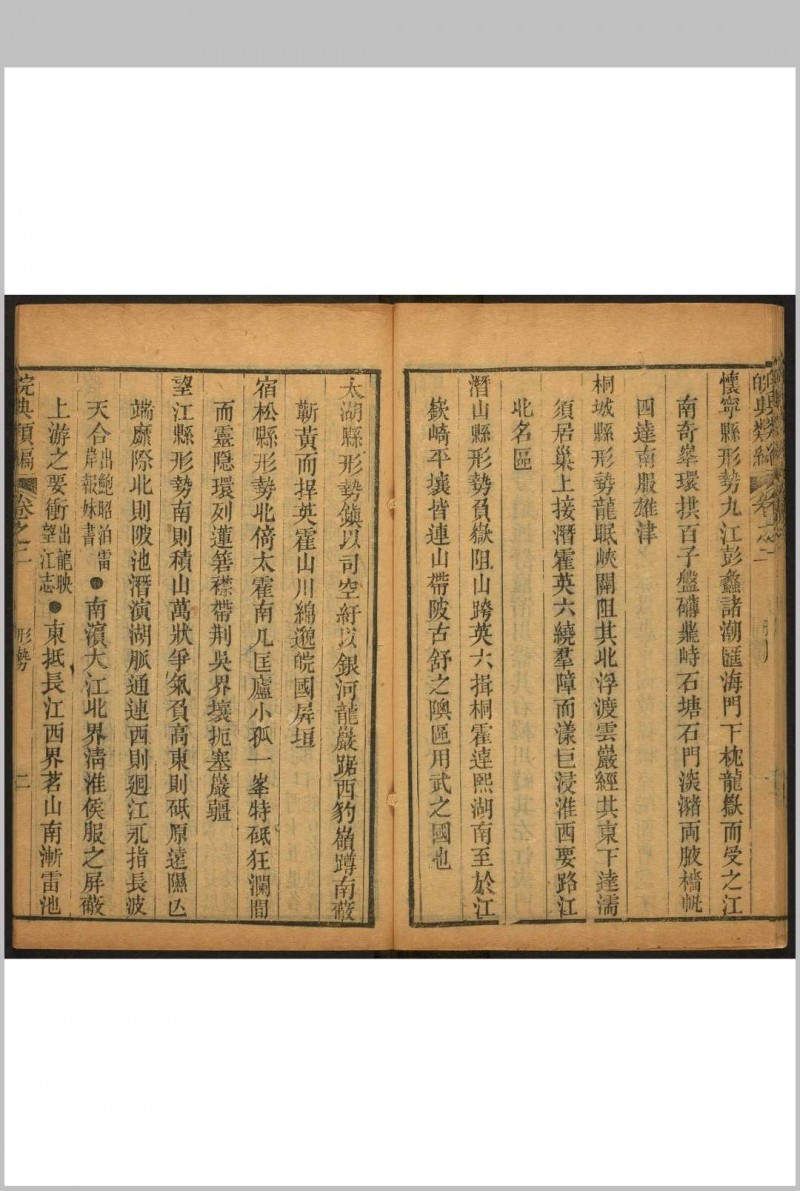 皖典類編 卷之二
懷寧縣形勢九江彭蠡諸潮匯海門下枕龍嶽而受之江
南奇峯環拱百子盤礴鼎峙石塘石門淡瀦兩腋檣帆
四達南服雄津
桐城縣形勢龍眠峽關阻其北浮渡雲巖經其東下達濡
須居巢上接潛霍英六繞羣障而漾巨浸淮西要路江
北名區
潛山縣形勢負嶽阻山跨英六揖桐霍達熙湖南至於江
嶔崎平壤皆連山帶陂古舒之隩區用武之國也
太湖縣形勢鎮以司空紆以銀河龍巖踞西豹嶺蹲南蔽
蘄黃而捍英霍山川綿邈皖國屏垣
宿松縣形勢北倚太霍南几匡廬小孤一峯特砥狂瀾間
而靈隱環列蓮箬襟帶荆吳界壤扼塞巖疆
望江縣形勢南則積山萬狀爭氣負高東則砥原遠隰亾
端靡際北則陂池潛演湖脈通連西則迴江永指長波
天合出鮑照泊雷岸報妹書●南濱大江北界淸淮侯服之屏蔽
上游之要衝出龍映望江志●東抵長江西界茗山南漸雷池
皖典類編 卷之二 形勢 二